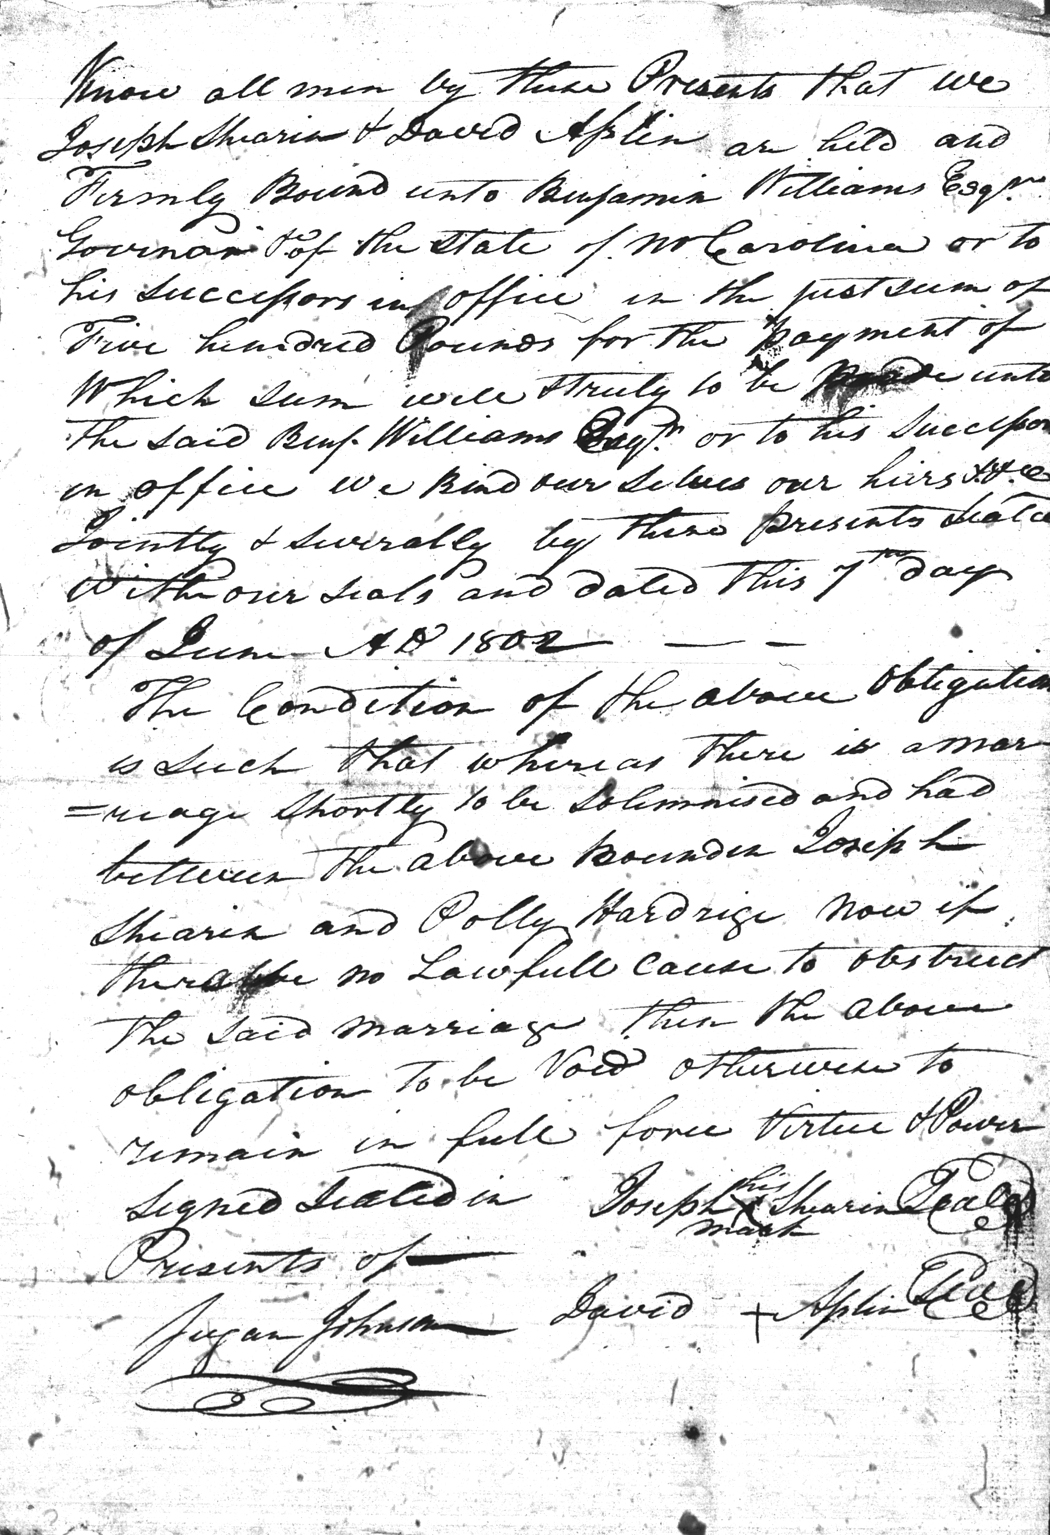 Know all men by these Presents that we
Joseph Shearin & David Aplin are held and
Firmly Bound unto Benjamin Williams Esqr.
Govinor &c of the State of No Carolina or to
his Successors in office in the just sum of
Five hundred Pounds for the payment of
Which sum well & truly to be made unto
the said Benj. Williams Esqr. or to his Successors
in office we Bind our selves our heirs &c
Jointly & Severally by these presents Sealed
With our seals and dated this 7th day
of June AD 1802 — —
The Condition of the above obligation
is such that whereas there is a mar
=reage shortly to be solemnised and had
between the above Bounden Joseph
Shearin and Polly Hardrige now if
there be no Lawfull cause to obstruct
the said marriage then the above
obligation to be Void otherwise to
remain in full force Virtue & Power
Signed Sealed in Joseph his X mark Shearin Seal
Presents of
Johnson David + Aplin Seal